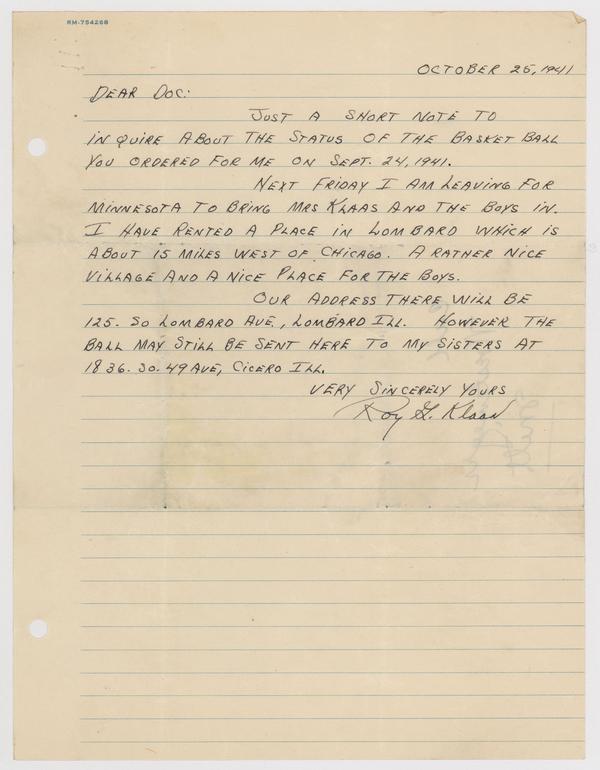 RM-754268
OCTOBER 25, 1941
DEAR DOC:
JUST A SHORT NOTE TO
IN QUIRE ABOUT THE STATUS OF THE BASKET BALL
YOU ORDERED FOR ME ON SEPT. 24, 1941.
NEXT FRIDAY I AM LEAVING FOR
MINNESOTA TO BRING MRS KLAAS AND THE BOYS IN.
I HAVE RENTED A PLACE IN LOMBARD WHICH IS
ABOUT 15 MILES WEST OF CHICAGO. A RATHER NICE
VILLAGE AND A NICE PLACE FOR THE BOYS.
OUR ADDRESS THERE WILL BE
125. SO LOMBARD AVE., LOMBARD ILL. HOWEVER THE
BALL MAY STILL BE SENT HERE TO MY SISTERS AT
1836. SO. 49 AVE, CICERO ILL.
VERY SINCERELY YOURS
Roy G. Klaas